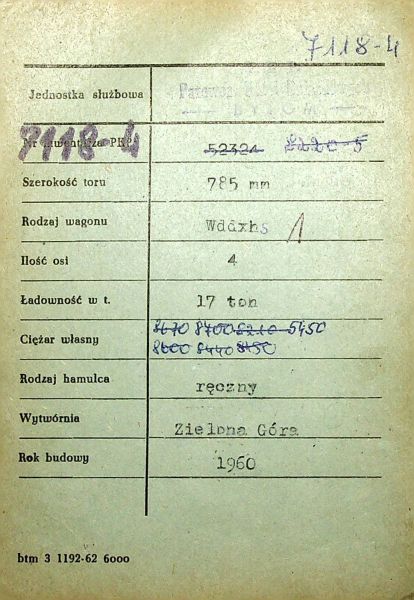 7118-4
Jednostka służbowa
BYTOM
7118-4
Nr inwentarza PKP 52324 8220-5
Szerokość toru 785 mm
Rodzaj wagonu Wddxhs 1
Ilość osi 4
Ładowność w t. 17 ton
8670 8700 8210 5450
Ciężar własny
8600 8440 8150
Rodzaj hamulca ręczny
Wytwórnia Zielona Góra
Rok budowy 1960
btm 3 1192-62 6000